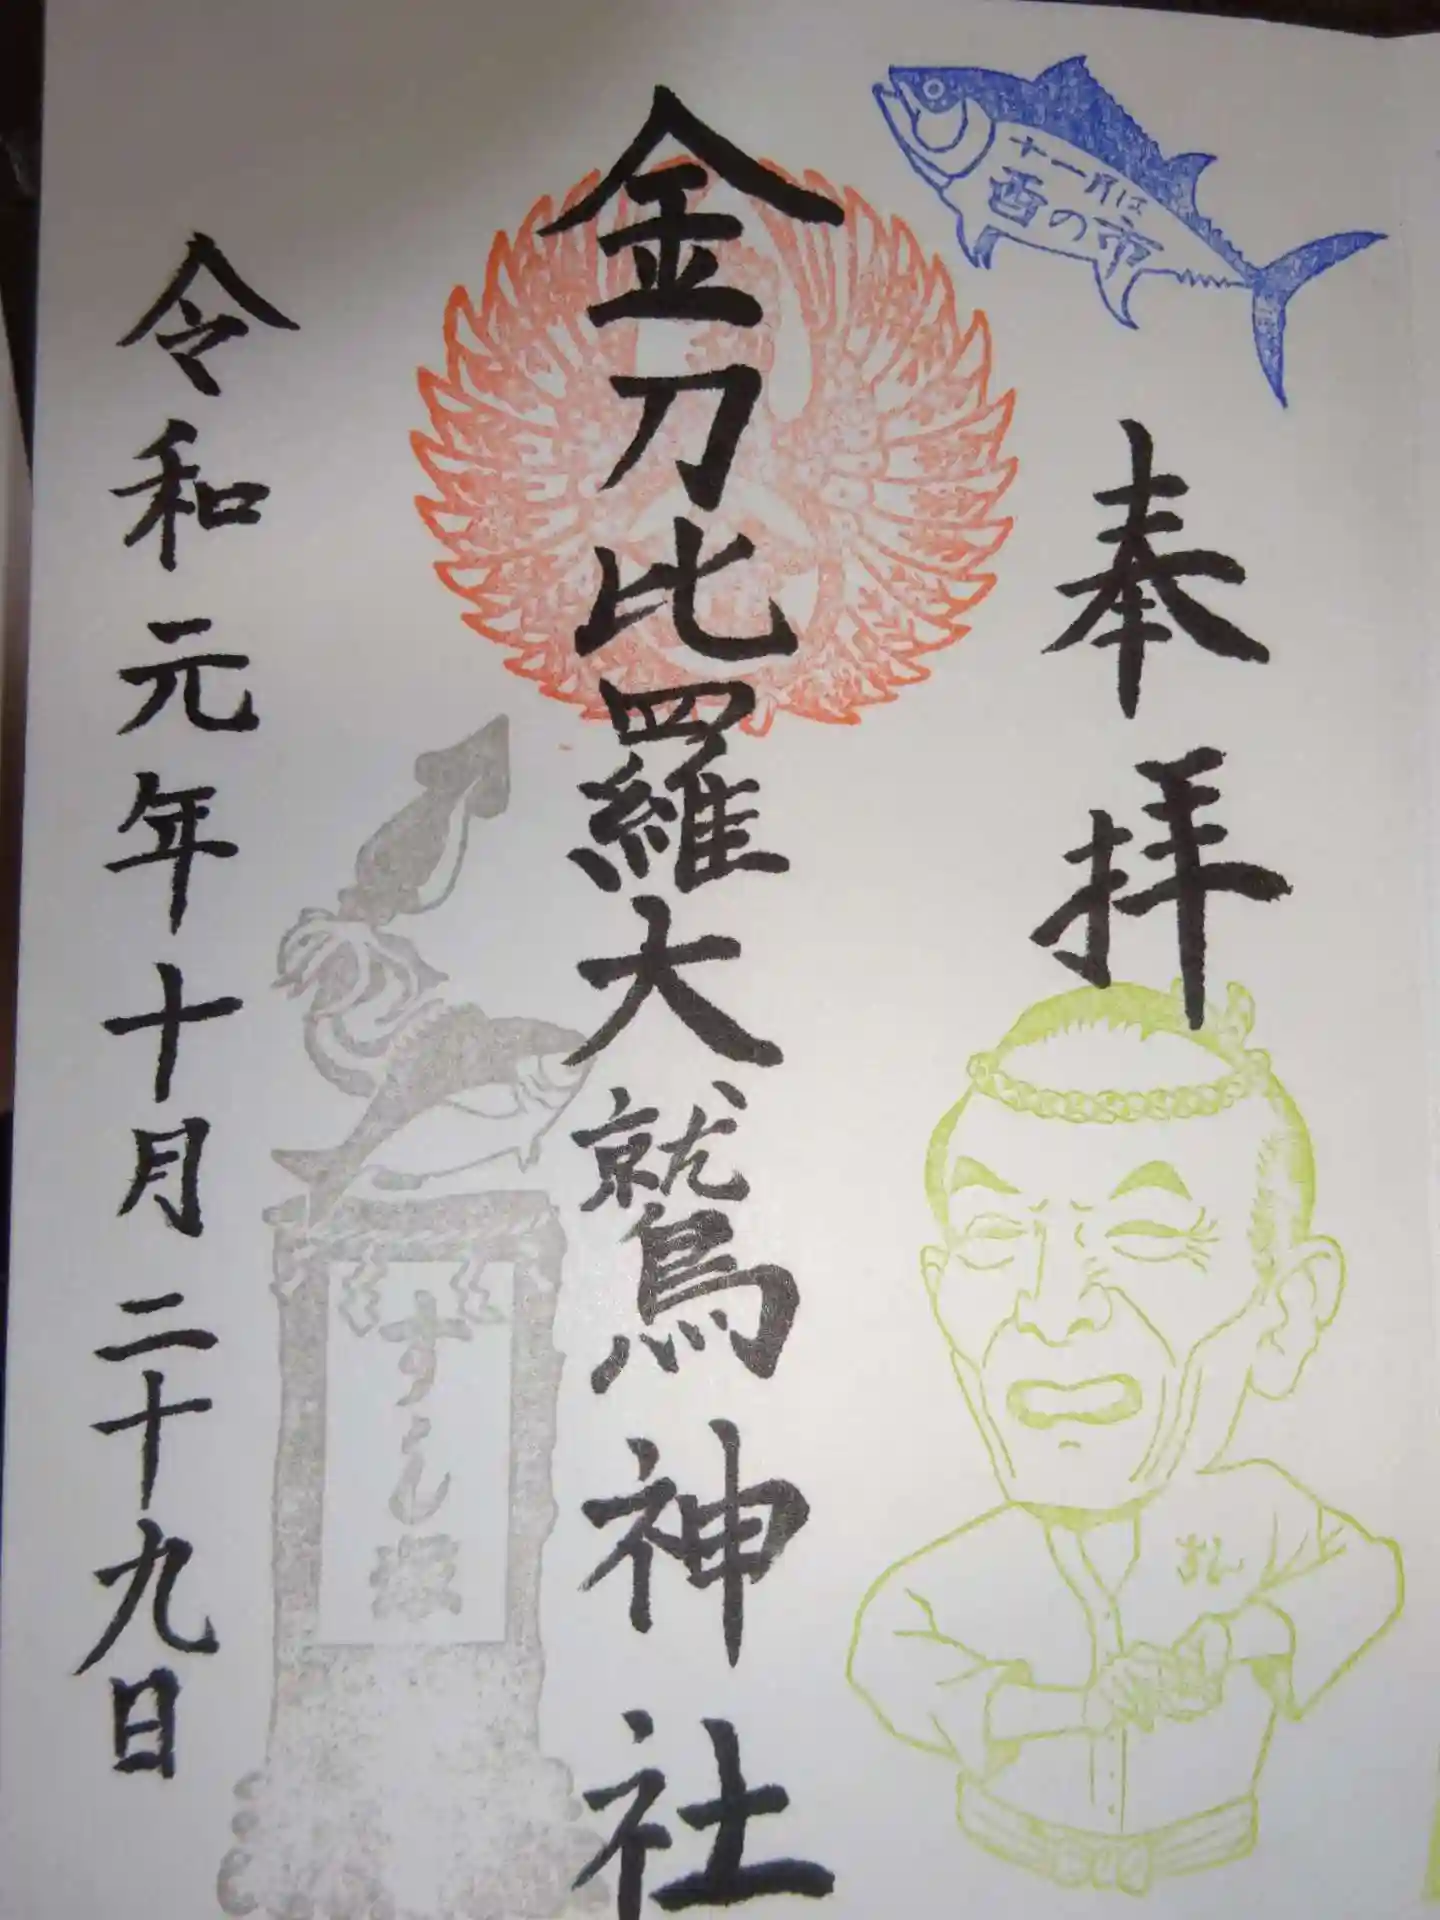 十一月は
酉の市
奉拝
金刀比羅大鷲神社
すし塚
すし
令和元年十月二十九日